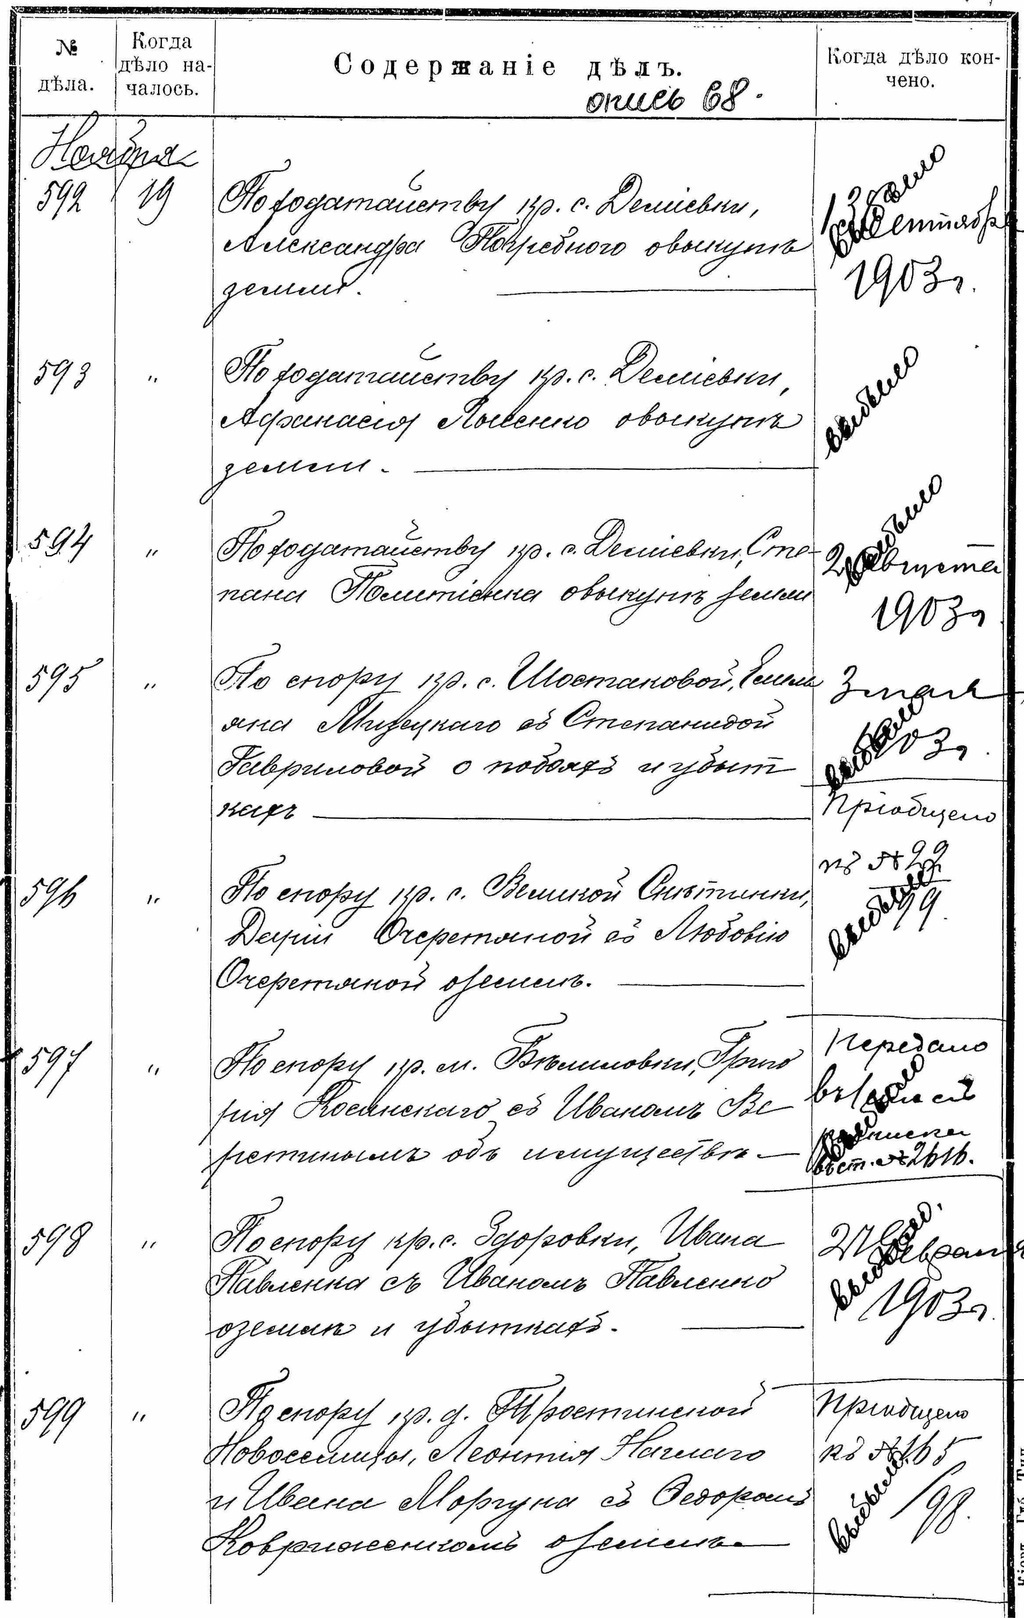 № дѣла.
Когда дѣло на-
чалось.
Содержаніе дѣлъ.
Когда дѣло кон-
чено.
опись 68.
Ноября
592 19 По ходатайству кр. с. Деміевки,
Александра Погребного о выкупѣ
земли.
выбыло
13 Сентября
1903 г.
593 " По ходатайству кр. с. Деміевки,
Афанасія Лысенко о выкупѣ
земли.
выбыло
594 " По ходатайству кр. с. Деміевки, Сте-
пана Политіенка о выкупѣ земли
выбыло
2 Августа
1903 г
595 " По спору кр. с. Шостаковой, Емель
яна Мизецкаго съ Степанидой
Гавриловой о побояхъ и убыт
кахъ
3 мая
1903 г.
выбыло
596 " По спору кр. с. Великой Снѣтинки,
Даріи Очеретяной съ Любовію
Очеретяной о землѣ.
Пріобщено
къ № 22
99.
выбыло
597 " По спору кр. м. Бѣлиловки, Григо
рія Косинскаго съ Иваномъ Ве
ретинымъ объ имуществѣ
Передано
выбыло
вст. № 2616.
598 " По спору кр. с. Здоровки, Ивана
Павленка съ Иваномъ Павленко
о землѣ и убыткахъ.
27 Февраля
выбыло.
1903 г.
599 " По спору кр. д. Тростинской
Новоселицы, Леонтія Наглаго
и Ивана Моргуна съ Федоромъ
Ковриженкомъ о землѣ
Пріобщено
къ № 165
/98.
выбыло